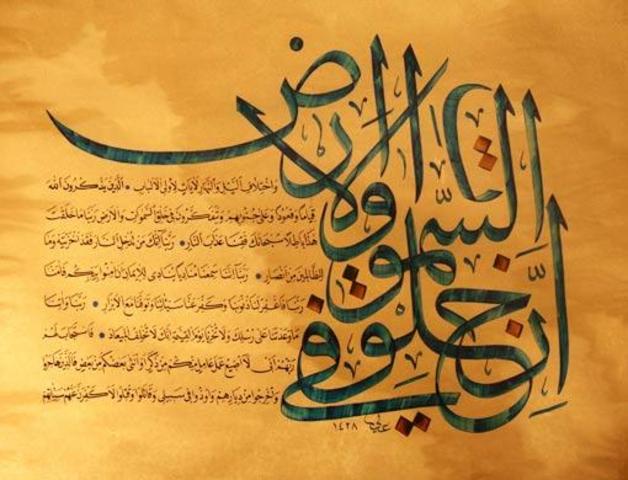 إن في خلق السموات والأرض
واختلاف الليل والنهار لآيات لأولي الألباب • الذين يذكرون الله
قياما وقعودا وعلى جنوبهم ويتفكرون في خلق السموات والأرض ربنا ما خلقت
هذا باطلا سبحانك فقنا عذاب النار • ربنا إنك من تدخل النار فقد أخزيته وما
للظالمين من أنصار • ربنا إننا سمعنا مناديا ينادي للإيمان أن آمنوا بربكم فآمنا
ربنا فاغفر لنا ذنوبنا وكفر عنا سيئاتنا وتوفنا مع الأبرار • ربنا وآتنا
ما وعدتنا على رسلك ولا تخزنا يوم القيمة إنك لا تخلف الميعاد • فاستجاب لهم
ربهم أني لا أضيع عمل عامل منكم من ذكر أو أنثى بعضكم من بعض فالذين هاجروا
وأخرجوا من ديارهم وأوذوا في سبيلي وقاتلوا وقتلوا لأكفرن عنهم سيئاتهم
١٤٢٨